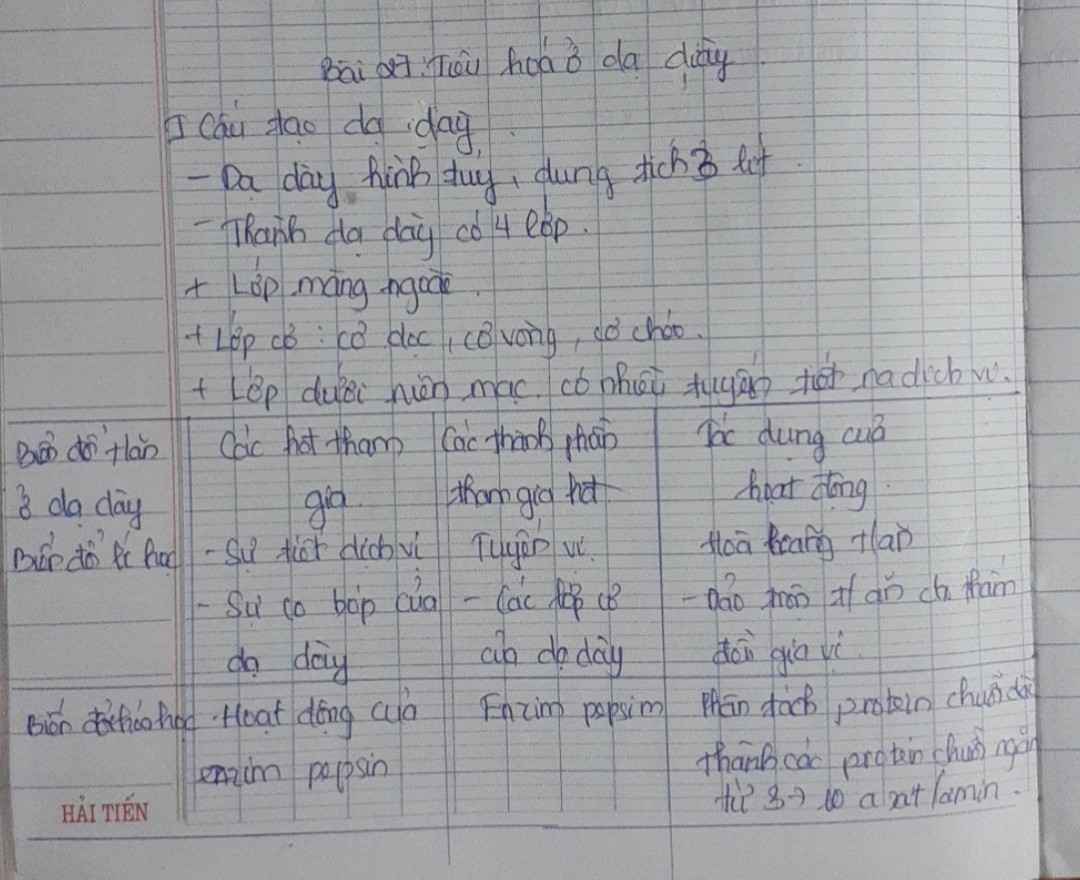 Bài 27: Tiêu hoá ở dạ dày
I Cấu tạo dạ dày
- Dạ dày hình túy, dung tích 3 lít.
- Thành dạ dày có 4 lớp.
+ Lớp màng ngoài.
+ Lớp cơ: cơ dọc, cơ vòng, cơ chéo.
+ Lớp dưới niên mạc có nhiều tuyến tiết ra dịch vị.
Biến đổi t/ăn Các hđt tham Các thành phần Tác dụng của
ở dạ dày gia tham gia hđt hoạt động.
Biến đổi lí học - Sự tiết dịch vị Tuyến vị. Hoà loãng t/ăn
- Sự co bóp của - Các lớp cơ - Đảo trộn t/ăn thấm
dạ dày của dạ dày đều gia vị.
Biến đổi hóa học Hoạt động của Enzim pepsim Phân tách protein chuỗi dài
enzim pepsin thành các protein chuỗi ngắn
từ 3 → 10 a xit lamin.
HẢI TIẾN